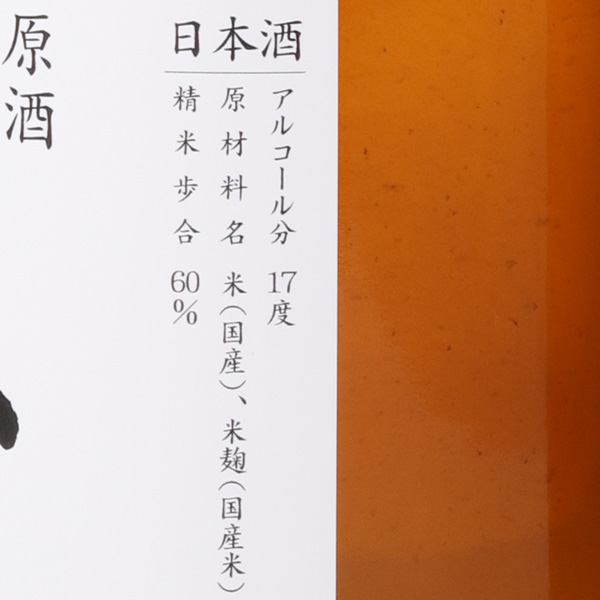 日本酒
アルコール分 17度
原材料名 米(国産)、米麹(国産米)
精米歩合 60%
原酒